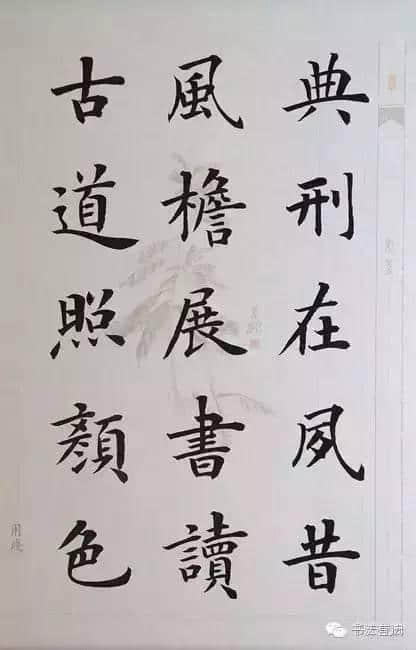 典刑在夙昔
風檐展書讀
古道照顏色
用箋
书法荐读